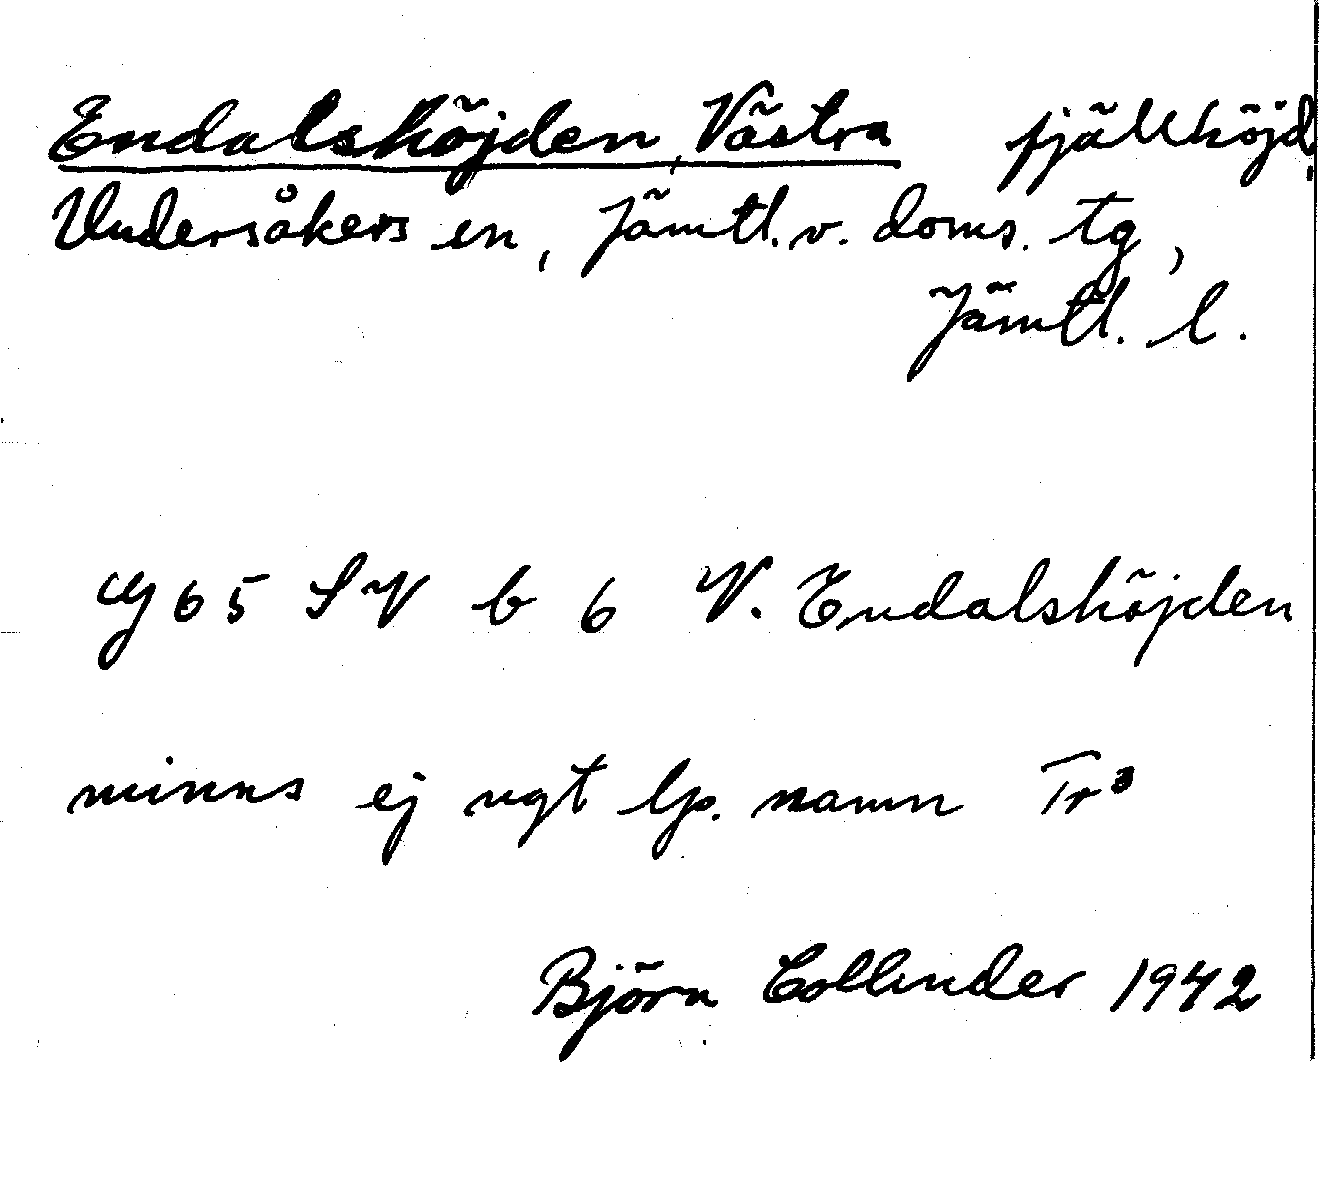 Endalshöjden, Västra fjällhöjd,
Undersåkers sn, Jämtl. v. doms. tg,
Jämtl. l.
65 SV b 6 V. Endalshöjden
minns ej ngt lp. namn Tr³
Björn Collinder 1942